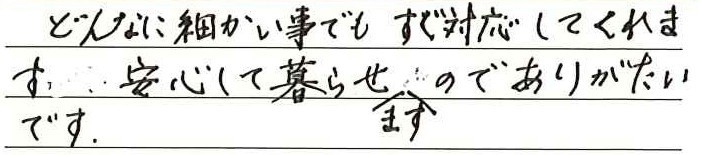 どんなに細かい事でも すぐ対応してくれま
す 安心して暮らせますのでありがたい
です.